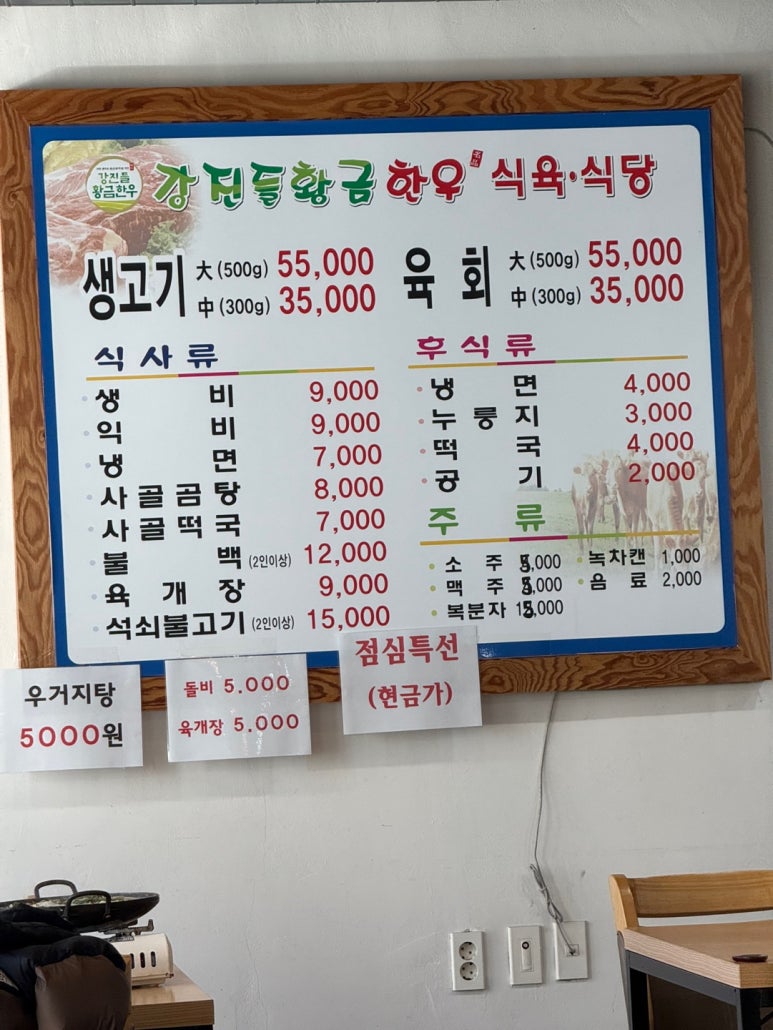 강진들
황금한우
강진들황금한우 식육·식당
생고기 大 (500g) 55,000
中 (300g) 35,000
육회 大 (500g) 55,000
中 (300g) 35,000
식사류
생비 9,000
익비 9,000
냉면 7,000
사골곰탕 8,000
사골떡국 7,000
불백 (2인이상) 12,000
육개장 9,000
석쇠불고기 (2인이상) 15,000
후식류
냉면 4,000
누룽지 3,000
떡국 4,000
공기 2,000
주류
소주 5,000
맥주 5,000
복분자
녹차캔 1,000
음료 2,000
우거지탕
5000원
돌비 5.000
육개장 5.000
점심특선
(현금가)